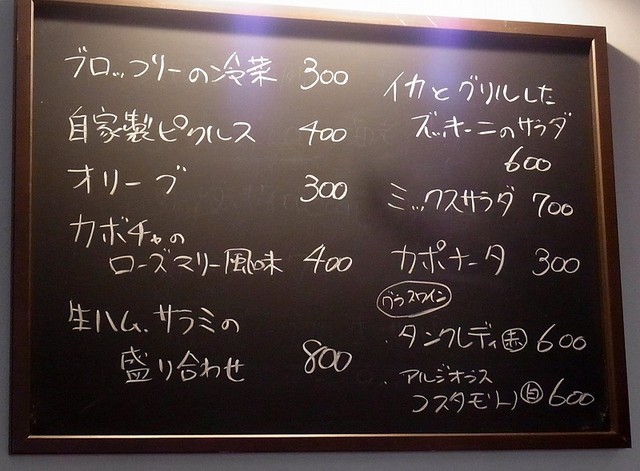 ブロッコリーの冷菜 300
自家製ピクルス 400
オリーブ 300
カボチャの
ローズマリー風味 400
生ハム、サラミの
盛り合わせ 800
イカとグリルした
ズッキーニのサラダ
600
ミックスサラダ 700
カポナータ 300
グラスワイン
・タンクレディ 赤 600
・アルジオラス
コスタモリノ 白 600